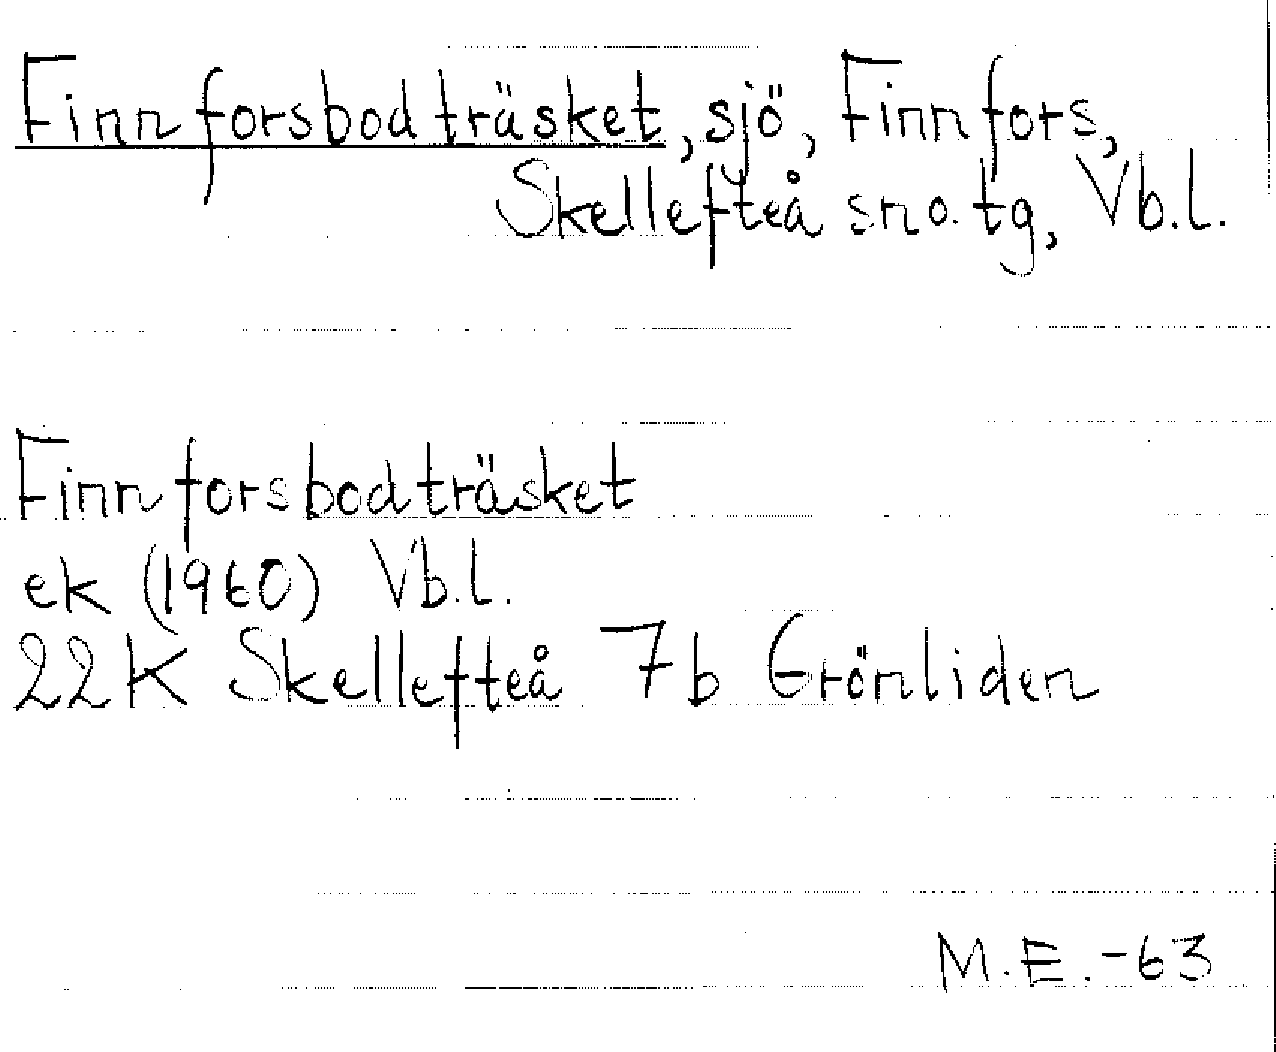 Finnforsbodträsket, sjö, Finnfors,
Skellefteå sn o. tg, Vb.l.
Finnforsbodträsket
ek (1960) Vb.l.
22K Skellefteå 7b Grönliden
M.E.-63